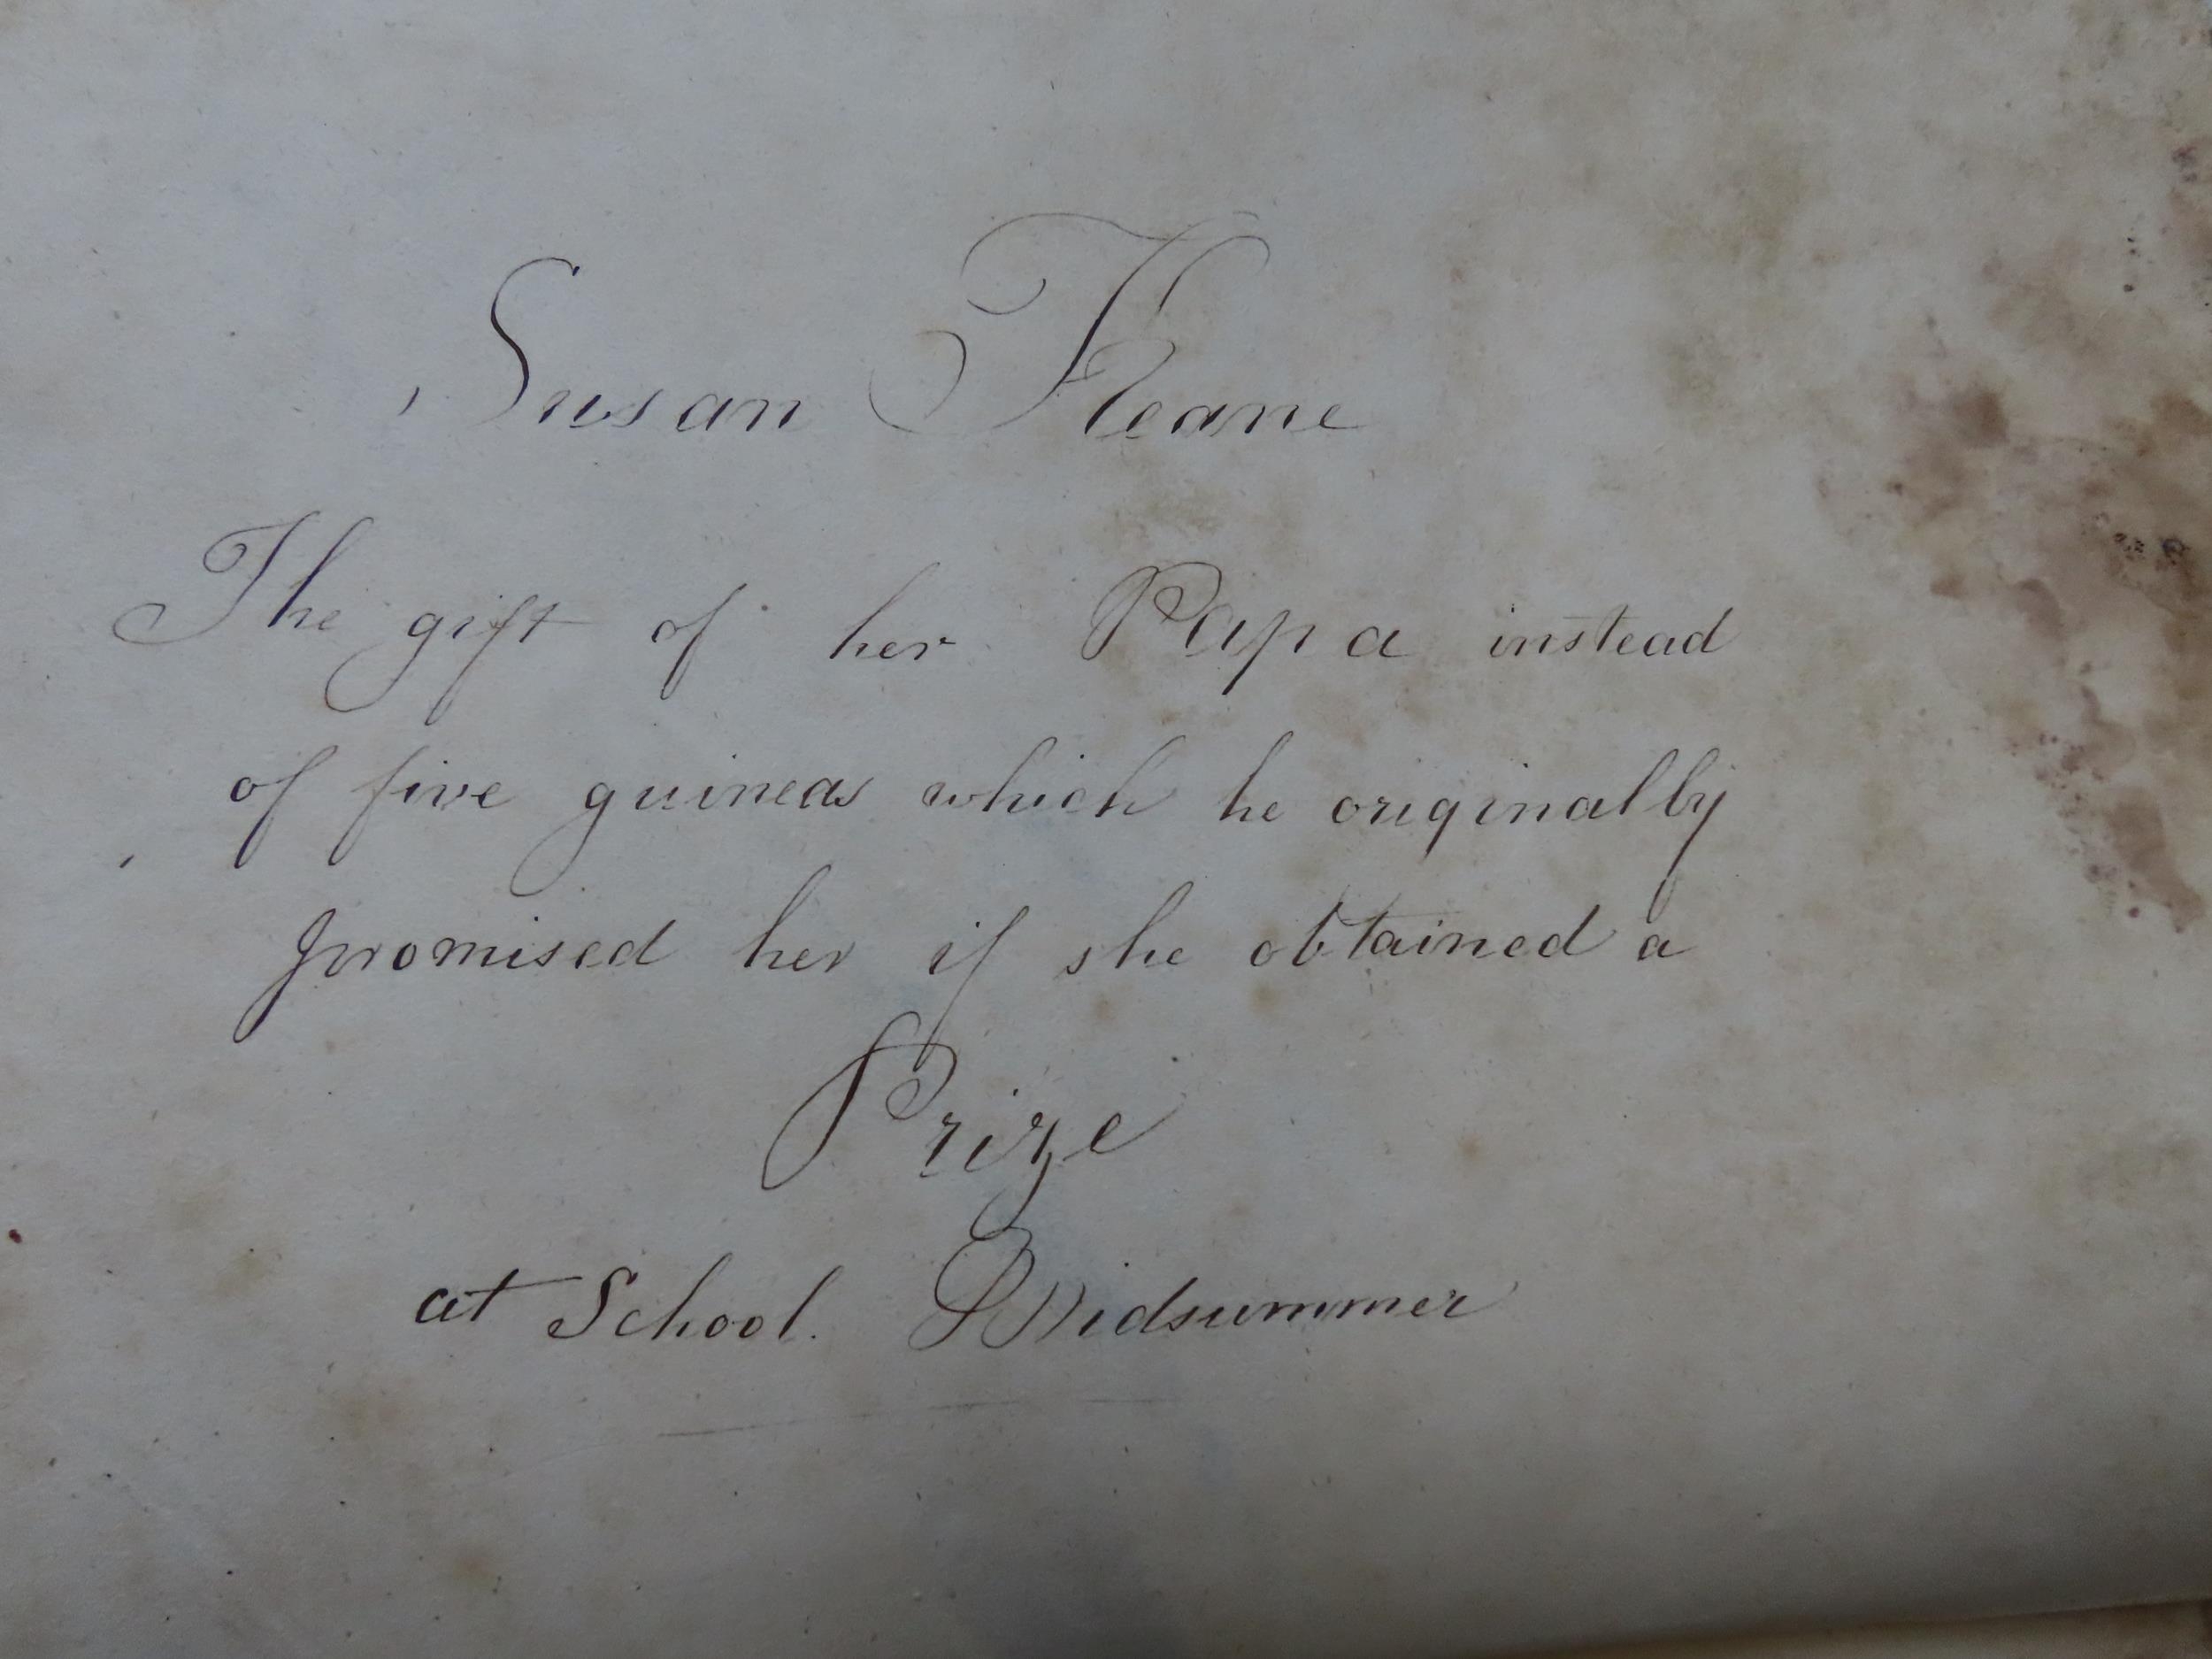 Susan Keane
The gift of her Papa instead
of five guineas which he originally
promised her if she obtained a
Prize
at School. Midsummer